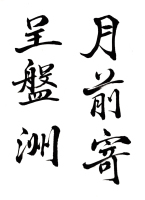 月前寄
呈盤洲